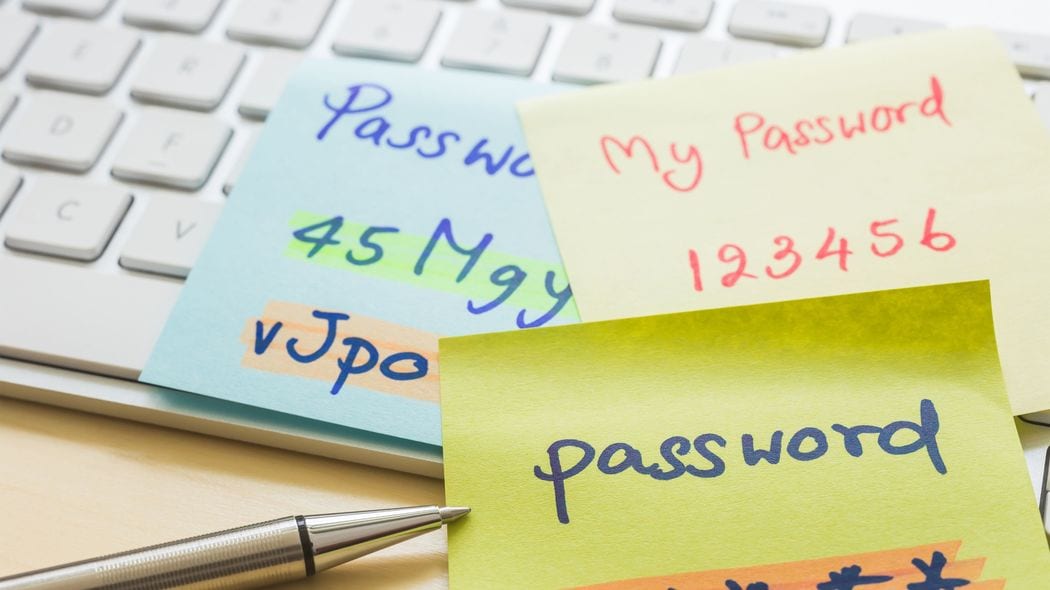 R
D F
C V
Passwo
45 Mgy
vJpo
My Password
123456
password